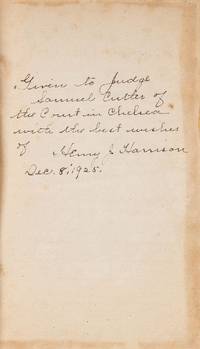 Given to Judge
Samuel Cutler of
the Court in Chelsea
with the best wishes
of Henry J. Harrison
Dec. 8, 1925.